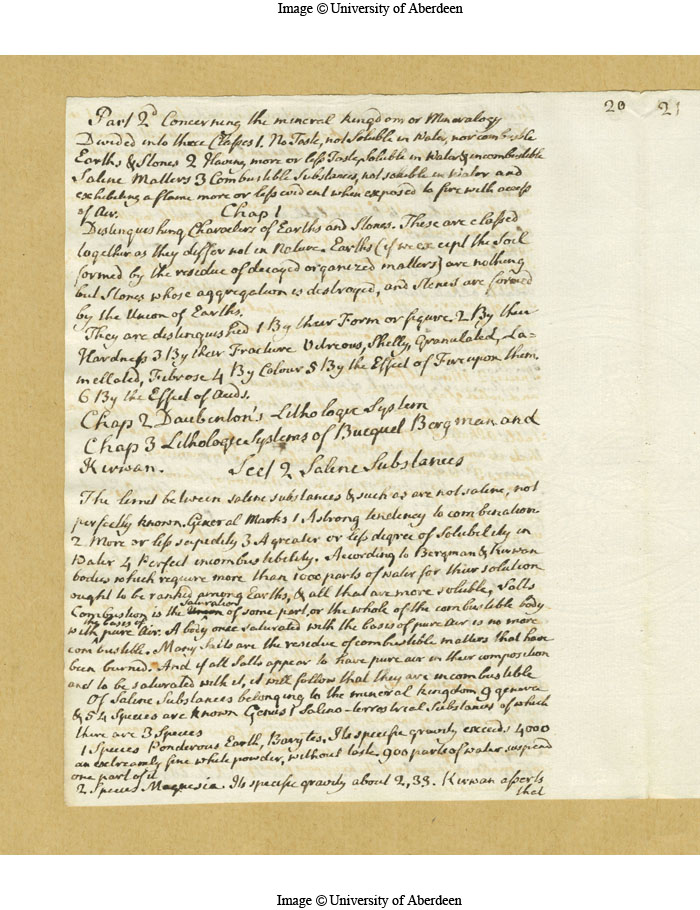 Image © University of Aberdeen
20 21
Part 2d Concerning the mineral kingdom or Mineralogy
Devided into three Classes 1. No Taste, not Soluble in Water, nor combustible
Earths & Stones 2 Having more or less Taste, Soluble in Water & incombustible
Saline Matters 3 Combustible Substances, not soluble in Water and
exhibiting a flame more or less evident when exposed to fire with access
of Air. Chap 1
Distinguishing Characters of Earths and Stones. These are classed
together as they differ not in Nature. Earths (if we except the Soil
formed by the residue of decayed organized matters) are nothing
but Stones whose aggregation is destroyed, and Stones are formed
by the Union of Earths.
They are distinguished 1 By their Form or figure. 2 By their
Hardness 3 By their Fracture Vitreous, Shelly, Granulated, La-
mellated, Fibrose 4 By Colour 5 By the Effect of Fire upon them
6 By the Effect of Acids.
Chap 2 Daubenton's Lithologic System
Chap 3 Lithologic Systems of Bucquet Bergman and
Kirwan. Sect 2 Saline Substances
The limit between saline substances & such as are not saline, not
perfectly known. General Marks 1 A strong tendency to combination
2 More or less sapidity 3 A greater or less degree of Solubility in
Water 4 Perfect incombustibility. According to Bergman & Kirwan
bodies which require more than 1000 parts of water for their solution
ought to be ranked among Earths, & all that are more soluble, Salts
Combustion is the Saturation of some part, or the whole of the combustible body
with the bases of pure Air. A body once saturated with the basis of pure air is no more
combustible. Many Salts are the residue of combustible matters that have
been burned. And if all Salts appear to have pure air in their composition
and to be saturated with it, it will follow that they are incombustible
Of Saline Substances belonging to the mineral kingdom 9 genera
& 54 Species are known Genus 1 Salino-terrestrial Substances of which
there are 3 Species
1 Species Ponderous Earth, Barytes. Its specific gravity exceeds 4000
an extreamly fine white powder, without taste. 900 parts of water suspend
one part of it
2 Species Magnesia. Its specific gravity about 2,33. Kirwan asserts
that
Image © University of Aberdeen